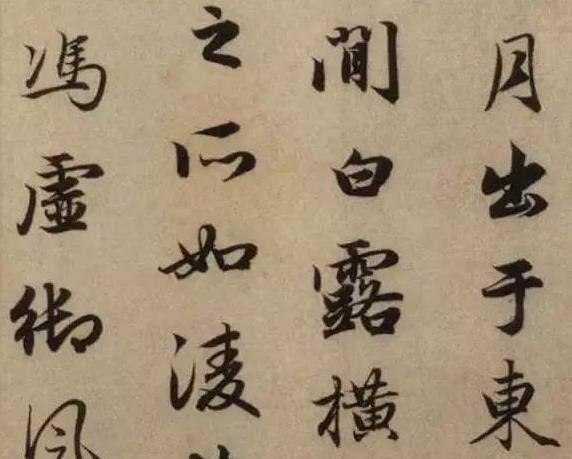 月出于東
間白露橫
之所如淩
馮虛御風